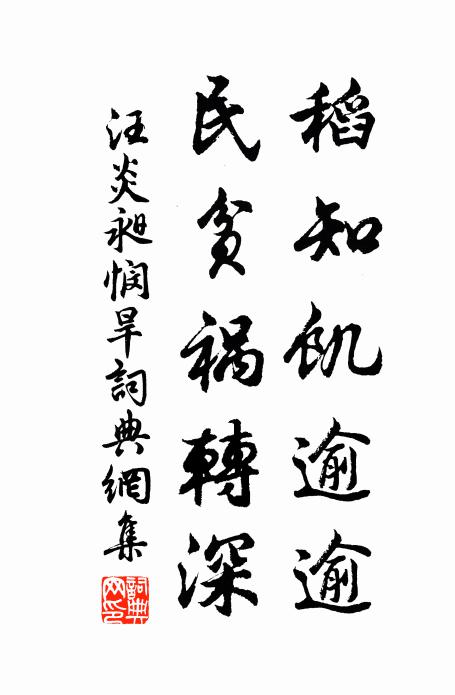 稻知飢逾逾
民貧禍轉深
汪炎昶憫旱詞典網集
詞典网印